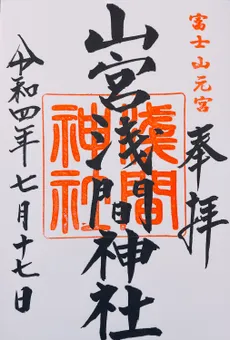 富士山元宮
奉拝
山宮浅間神社
浅間神社
令和四年七月十七日